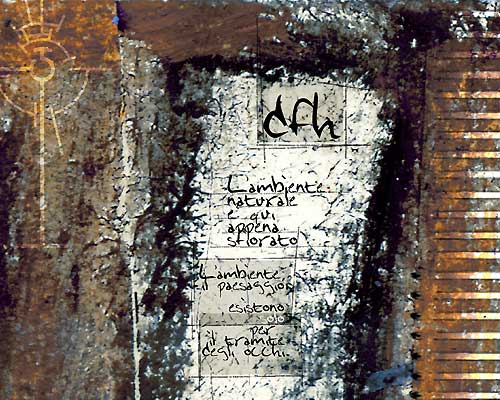 dfh
L'ambiente
naturale
e qui
appena
sfiorato
L'ambiente
il paesaggio
esistono
per
il tramite
degli occhi.